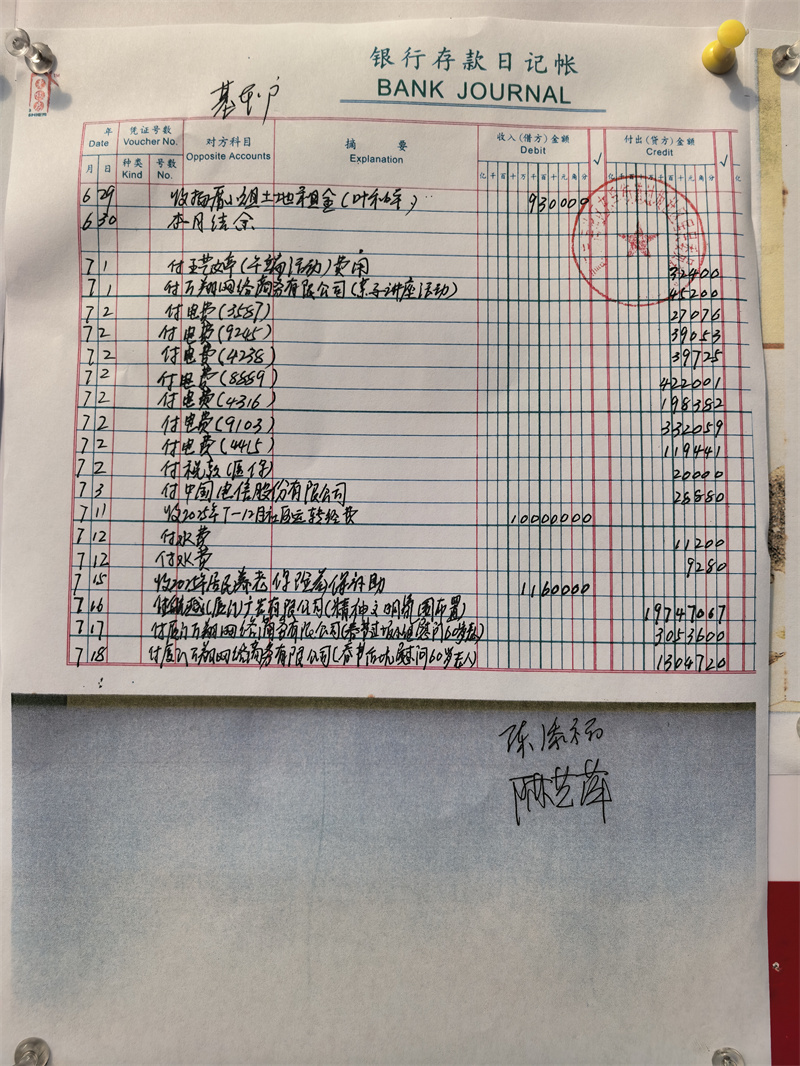 银行存款日记帐
BANK JOURNAL
基本户
年 Date 凭证号数 Voucher No. 对方科目 Opposite Accounts 摘要 Explanation 收入(借方)金额 Debit √ 付出(贷方)金额 Credit √
月 日 种类 Kind 号数 No. 亿千百十万千百十元角分 亿千百十万千百十元角分
6 29 小组土地租金( 930000
6 30 本月结余
7 1 付 (午端活动)费用 32400
7 1 付万翔网络商务有限公司(亲子讲座活动) 45200
7 2 付电费(3587) 27076
7 2 付电费(9245) 39053
7 2 付电费(4238) 39725
7 2 付电费(8889) 422001
7 2 付电费(4316) 198382
7 2 付电费(9103) 332059
7 2 付电费(4415) 119441
7 2 付税款(医保) 20000
7 3 付中国电信股份有限公司 28880
7 11 收2025年7-12月社区运转经费 10000000
7 12 付水费 11200
7 12 付水费 9280
7 15 收2025年居民养老保险 补助 1160000
7 16 (厦门)广告有限公司(精神文明氛围布置) 19747067
7 17 付厦门万翔网络商务有限公司(春节 慰问60岁老人) 3053600
7 18 付厦门万翔网络商务有限公司(春节 慰问60岁老人) 1304720